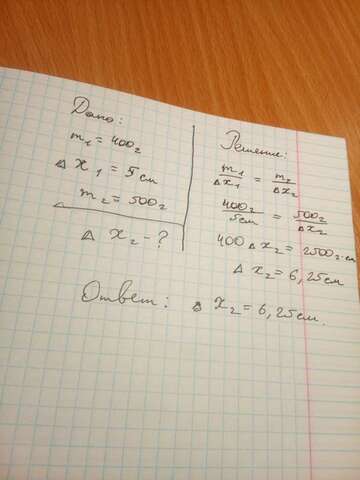 Дано:
m₁ = 400г
Δ x₁ = 5 см
m₂ = 500г
Δ x₂ - ?
Решение:
m₁/Δx₁ = m₂/Δx₂
400г/5см = 500г/Δx₂
400 Δx₂ = 2500г·см
Δ x₂ = 6,25см
Ответ: Δ x₂ = 6,25см.